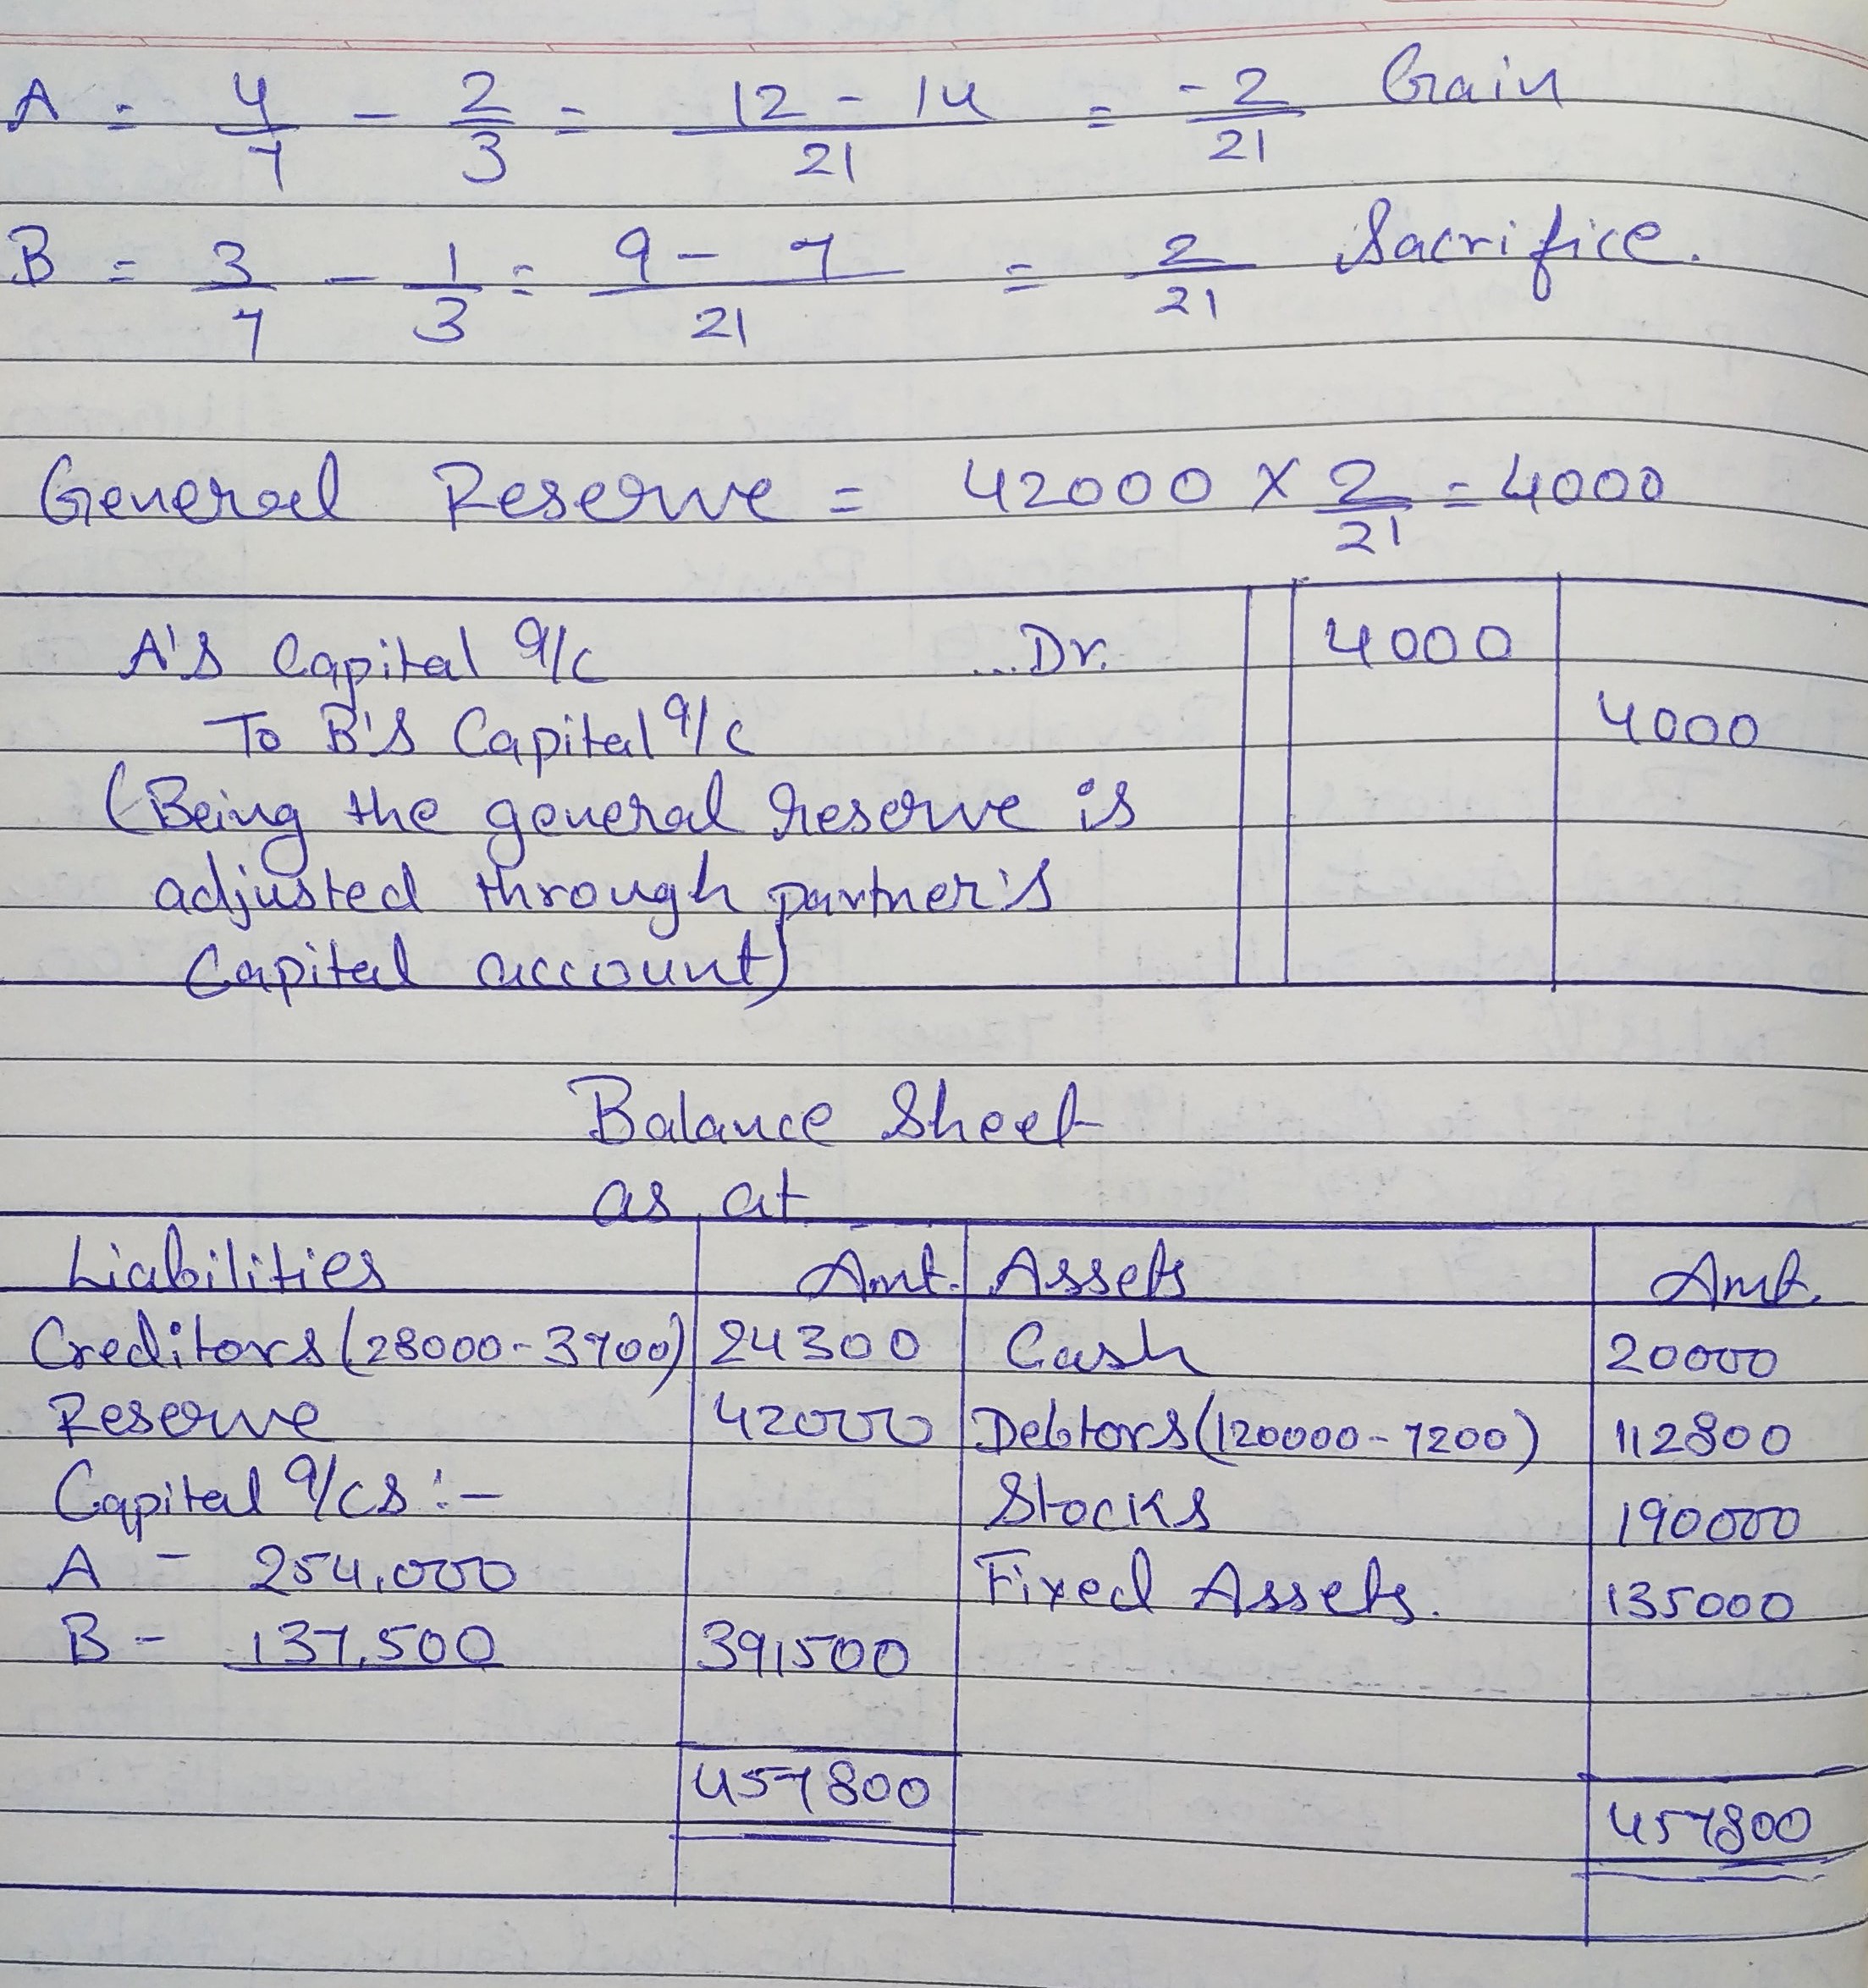 A = 4/7 - 2/3 = 12 - 14/21 = -2/21 Gain
B = 3/7 - 1/3 = 9 - 7/21 = 2/21 Sacrifice.
General Reserve = 42000 X 2/21 = 4000
A's Capital a/c ...Dr. 4000
To B's Capital a/c 4000
(Being the general reserve is
adjusted through partner's
Capital account)
Balance Sheet
as at
Liabilities Amt. Assets Amt.
Creditors (28000-3700) 24300 Cash 20000
Reserve 42000 Debtors (120000-7200) 112800
Capital a/cs :- Stocks 190000
A - 254,000 Fixed Assets. 135000
B - 137,500 391500
457800 457800